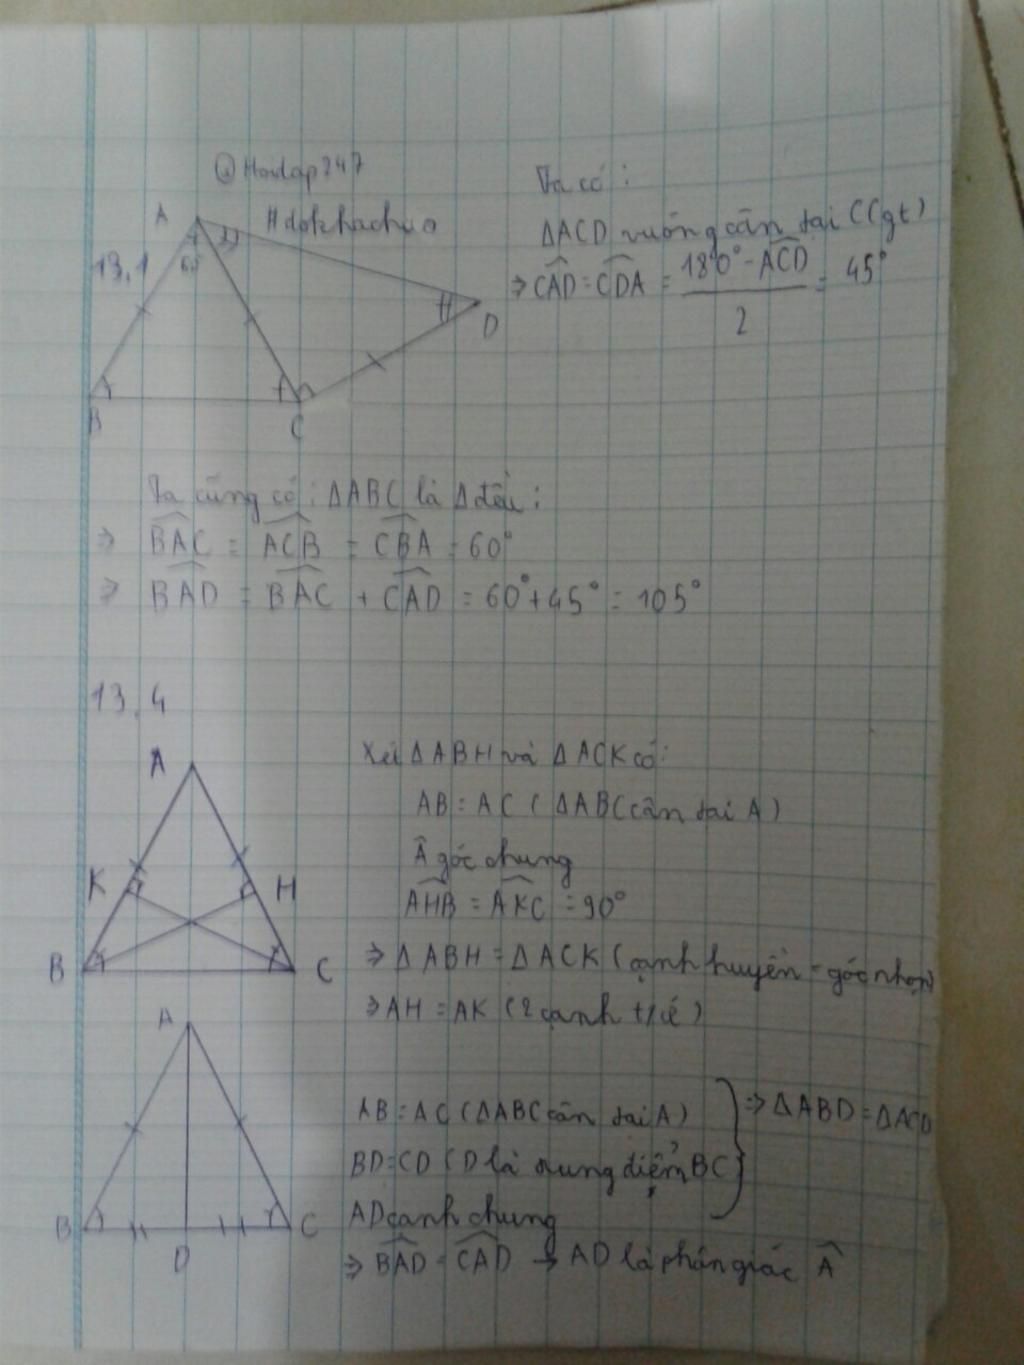 @Hoidap247
#dokhachuo
Ta có:
ΔACD vuông cân tại C(gt)
⇒ CAD = CDA = 180° - ACD / 2 = 45°
13,1
A
B
C
D
Ta cũng có: ΔABC là Δ đều:
⇒ BAC = ACB = CBA = 60°
⇒ BAD = BAC + CAD = 60° + 45° = 105°
13,4
A
K
H
B
C
Xét ΔABH và ΔACK có:
AB = AC (ΔABC cân tại A)
Â góc chung
AHB = AKC = 90°
⇒ ΔABH = ΔACK (cạnh huyền - góc nhọn)
⇒ AH = AK (2 cạnh t/ứ)
A
B
D
C
AB = AC (ΔABC cân tại A)
BD = CD (D là trung điểm BC)
AD cạnh chung
⇒ ΔABD = ΔACD
⇒ BAD = CAD → AD là phân giác Â